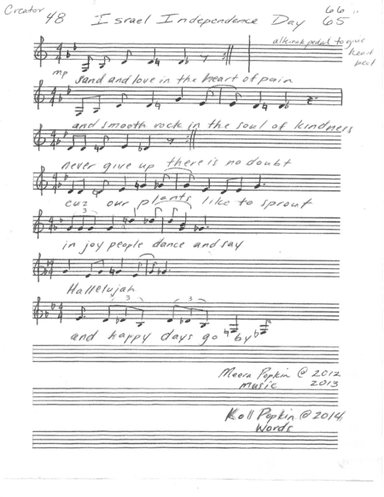 Creator 48 Israel Independence Day 66 65
mp
sand and love in the heart of pain
and smooth rock in the soul of kindness
never give up there is no doubt
cuz our plants like to sprout
3
in joy people dance and say
Hallelujah
3 3
and happy days go by
Meera Popkin @ 2012
music 2013
Koll Popkin @ 2014
Words